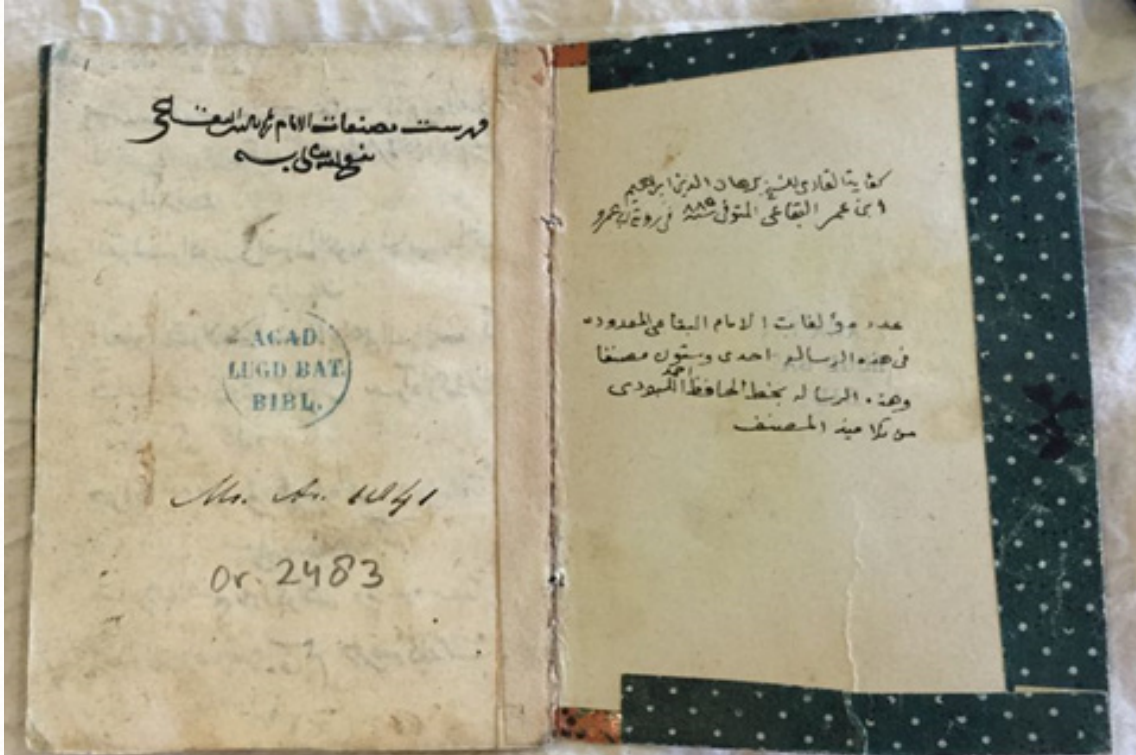 كفاية القارى للشيخ برهان الدين ابراهيم
ابن عمر البقاعى المتوفى سنة ٨٨٥ فى رواية ابى عمرو
عدد مؤلفات الامام البقاعى المعدوده
فى هذه الرساله احدى وستون مصنفا
وهذه الرساله بخط الحافظ احمد
من تلاميذ المصنف
فهرست مصنفات الامام برهان الدين البقاعى
نفع الله تعالى به
ACAD.
LUGD BAT.
BIBL.
Ms. Ar.
Or. 2483